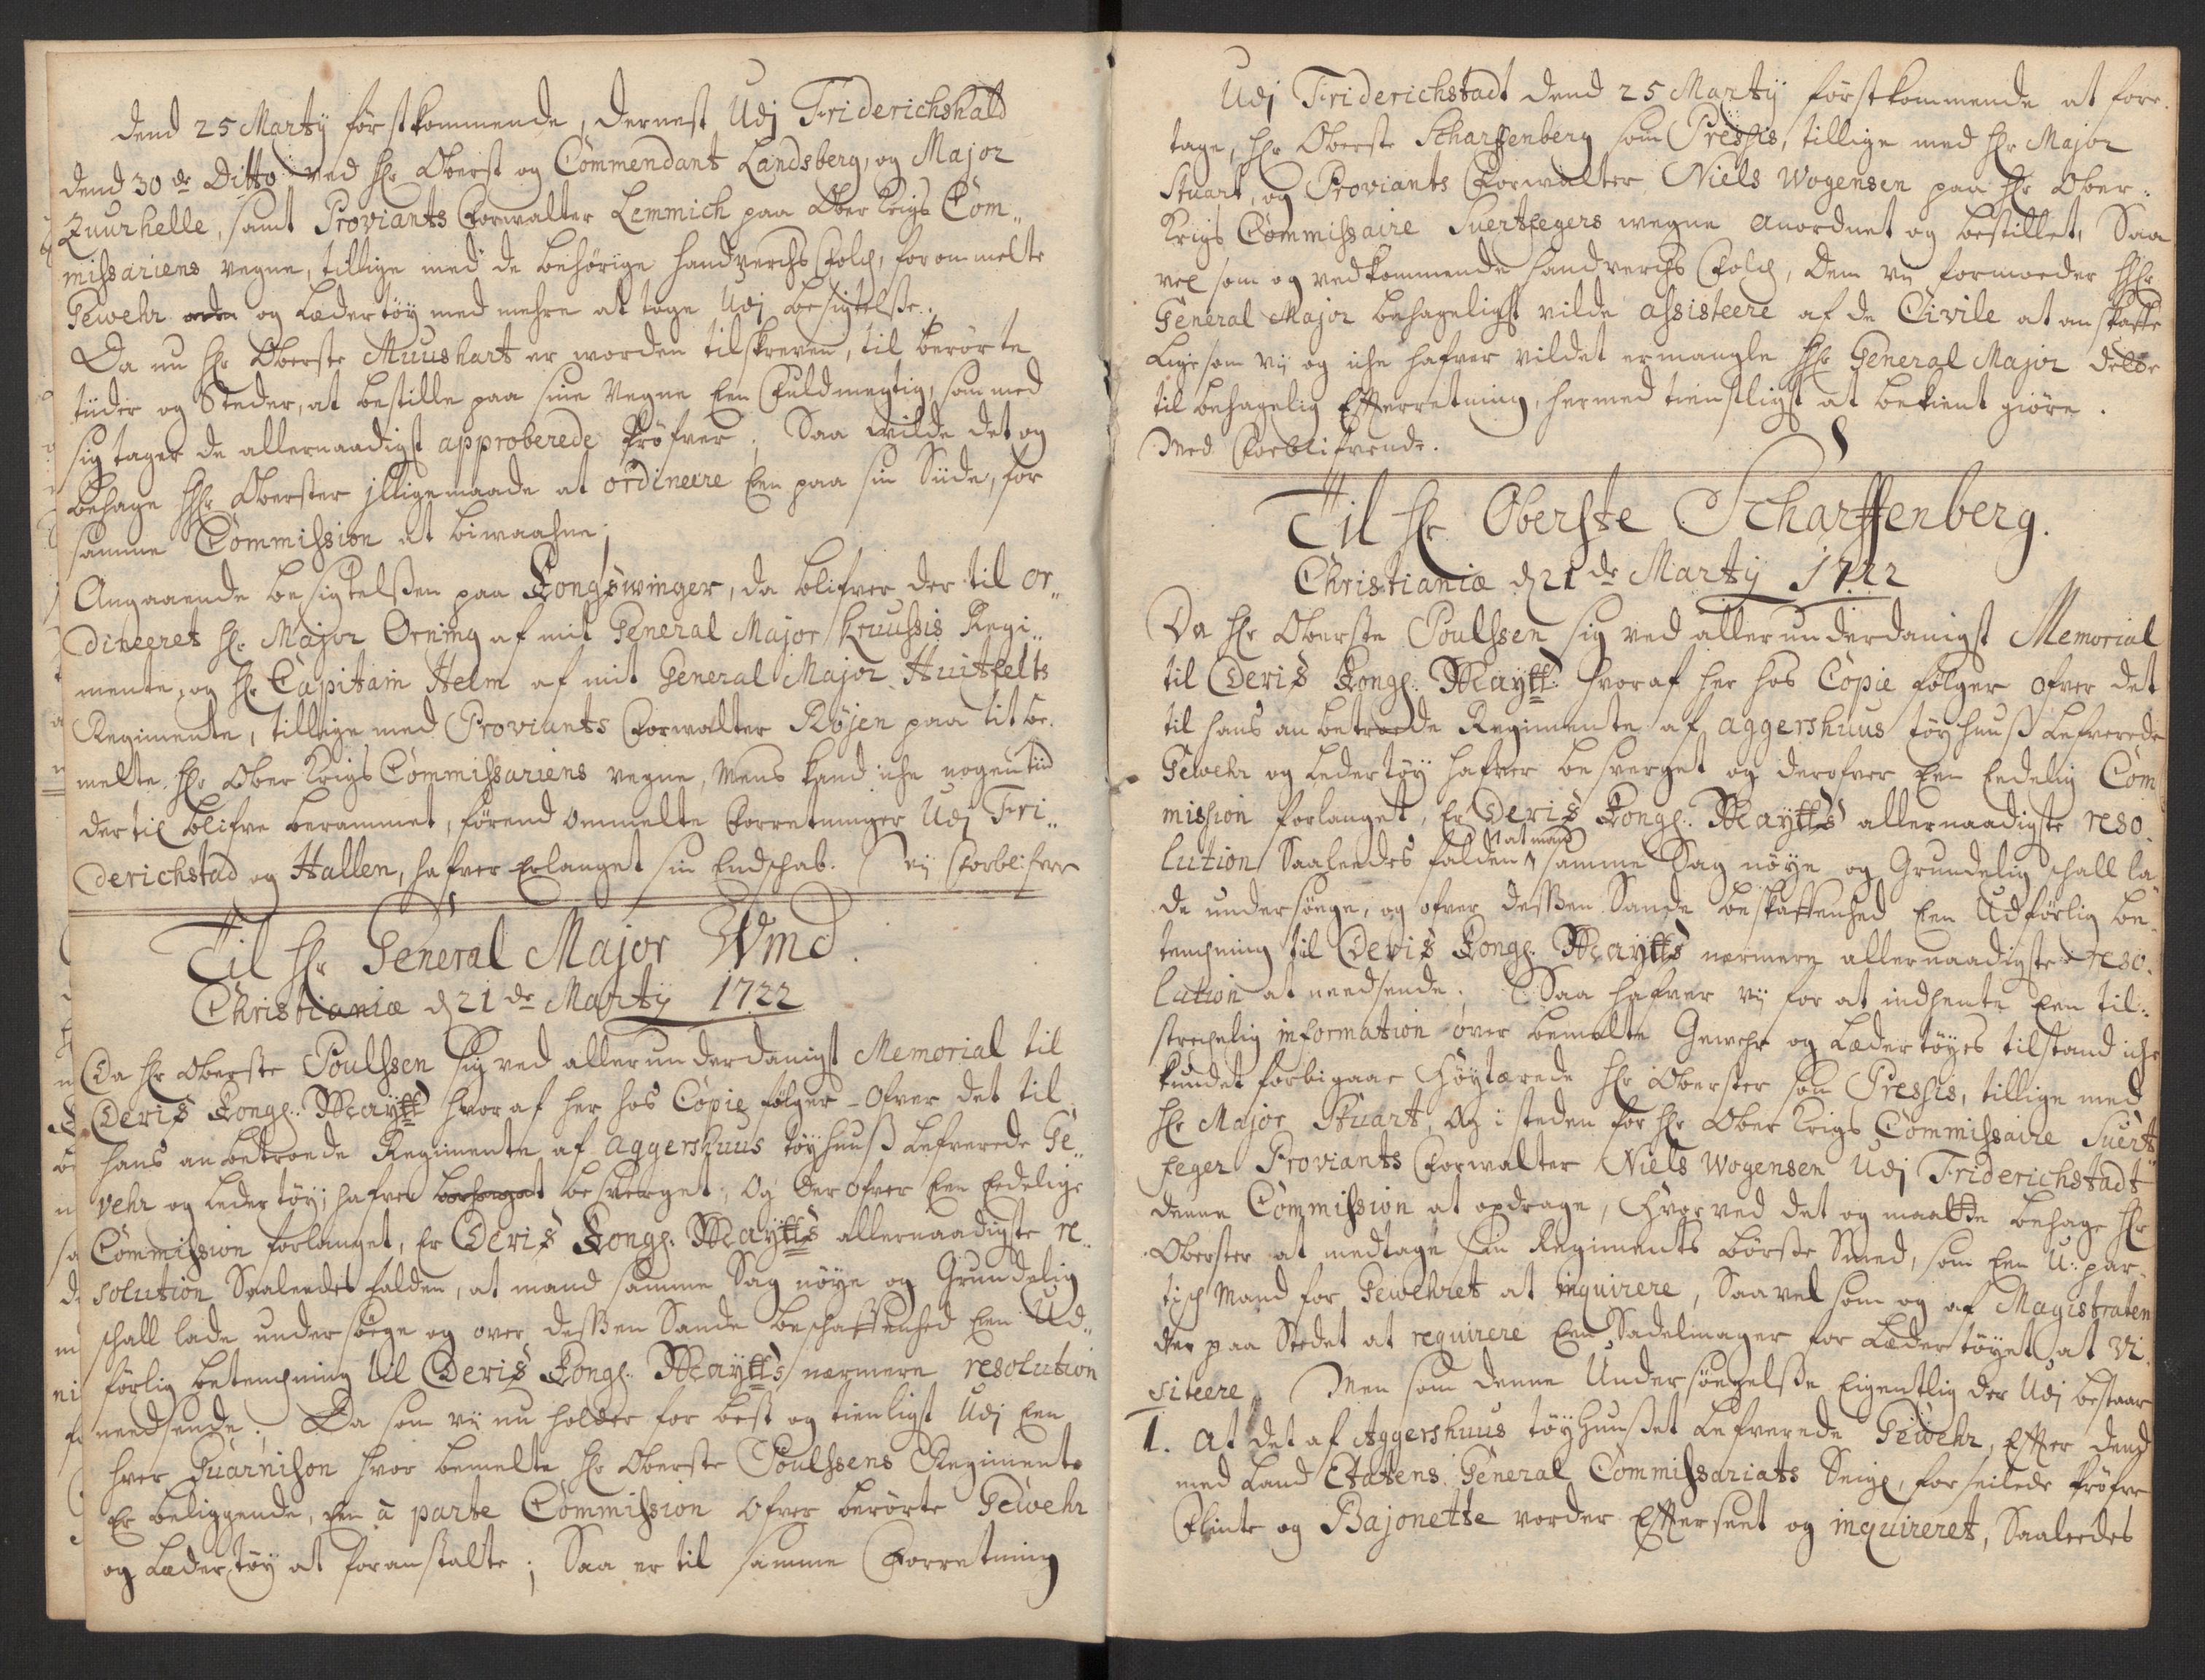 dend 25 Martÿ förstkommende, dernest Udj Friderichshald
dend 30 de Ditto ved Hr Oberst og Commendant Landsberg, og Major
Zuurhelle, samt Proviants Forwalter Lemmich paa Ober Krigs Com„
missariens vegne, tillige med de behörige handverchs Folch, for ommelte
Gewehr og Lædertöÿ med mehre at tage Udj besigtelsse.
Da nu Hr Oberste Muushart er worden tilskreven, til berörte
tiider og Steder, at bestille paa sine Vegne Een Fuldmegtig, som med
sig tager de allernaadigst approberede Pröfver; Saa wilde det og
behage Hr Oberster jlligemaade at ordineere Een paa sin Siide, for
samme Commission at biwaahne;
Angaaende besigtelssen paa Kongswinger, da blifver der til or„
dineeret Hr. Major Örning af mit General Major Kruussis Regi„
mente, og Hr Capitain Helm af mit General Major Huitfelts
Regimente, tillige med Proviants Forwalter Röjen paa titbe.
melte Hr Ober Krigs Commissariens vegne, Mens kand iche nogen tiid
dertil blifve berammet, förend ommelte Forretninger Udj Fri„
derichstad og Hallen, hafver Erlanget sin Endschab. Vÿ Forblifver
Til Hr General Major Wmd.
Christianiæ d 21 de Martÿ 1722
Da Hr Oberste Poulssen sig ved allerunderdanigst Memorial til
Deris Kongl. Maytt hvoraf her hos Copie fölger ofver det til
hans anbetroede Regimente af Aggershuus töÿhuuss Lefverede Ge„
vehr og Ledertöÿ, hafver besverget, Og der ofver Een Endelige
Commission forlanget, Er Deris Kongl. Maytts allernaadigste re„
solution Saaleedes falden, at mand samme Sag nöÿe og Grundelig
schall lade undersöge og over dessen Sande beschaffenhed Een Ud„
förlig betenchning til Deris Kongl. Maytts nærmere resolution
needsende. Da som vÿ nu holder for best og tienligst Udj Een
hver Guarnison hvor bemelte Hr Oberste Poulssens Regimente
Er beliggende, Een à parte Commission ofver berörte Gewehr
og Lædertöÿ at foranstalte; Saa er til samme Forretning
Udj Friderichstadt dend 25 Martÿ förstkommende at fore.
tage, Hr Oberste Scharffenberg som Pressis, tillige med Hr Major
Stuart, og Proviants Forwalter Niels Wogensen paa Hr Ober.
Krigs Commissaire Suertfegers wegne anordnet og bestillet, Saa
vel som og vedkommende handverchs Folch, dem vÿ formoeder Hr
General Major behageligst vilde assisteere af de Civile at anskaffe
Lige som vÿ og iche hafver vildet ermangle Hr General Major dette
til behagelig Efterretning, hermed tienstligst at bekient giöre.
Med Forblifvende.
Til Hr Oberste Scharffenberg.
Christianiæ d 21 de Martÿ 1722
Da Hr Oberste Poulssen sig ved allerunderdanigst Memorial
til Deris Kongl. Maytt. hvoraf her hos Copie fölger ofver det
til hans anbetroede Regimente af Aggershuus töÿhuuss Lefverede
Gewehr og Ledertöÿ hafver besverget og derofver Een Endelig Com
mission forlanget, Er Deris Kongl. Maytts allernaadigste reso.
lution Saaleedes falden at mand samme Sag nöÿe og Grundelig schall la
de undersöge, og ofver dessen Sande beskaffenhed Een Udförlig be.
tenchning til Deris Kongl. Maytts nærmere allernaadigste reso.
lution at needsende. Saa hafver vÿ for at indhente Een til.
strechelig information over bemelte Gewehr og Lædertöÿes tilstand iche
kundet forbigaae Höÿtærede Hr Oberster som Pressis, tillige med
Hr Major Stuart, Og i steden for Hr Ober Krigs Commissaire Suert
feger Proviants Forwalter Niels Wogensen Udj Friderichstadt
denne Commission at opdrage, Hvorved det og maatte behage Hr
Oberster at medtage Sin Regiments Börste Smed, som Een U. par.
tisch Mand for Gewehret at inquirere, Saavel som og af Magistraten
der paa Stedet at requirere Een Sadelmager for Lædertöÿet at vi
siteere. Men som denne Undersögelsse Eigentlig der Udj bestaar
1. At det af Aggershuus töÿhuusset Lefverede Gewehr, Efter dend
med Land Etatens General Commissariats Seigl, forseilede Pröfve
Flinte og Bajonette vorder Efterseet og inquireret, Saaleedes